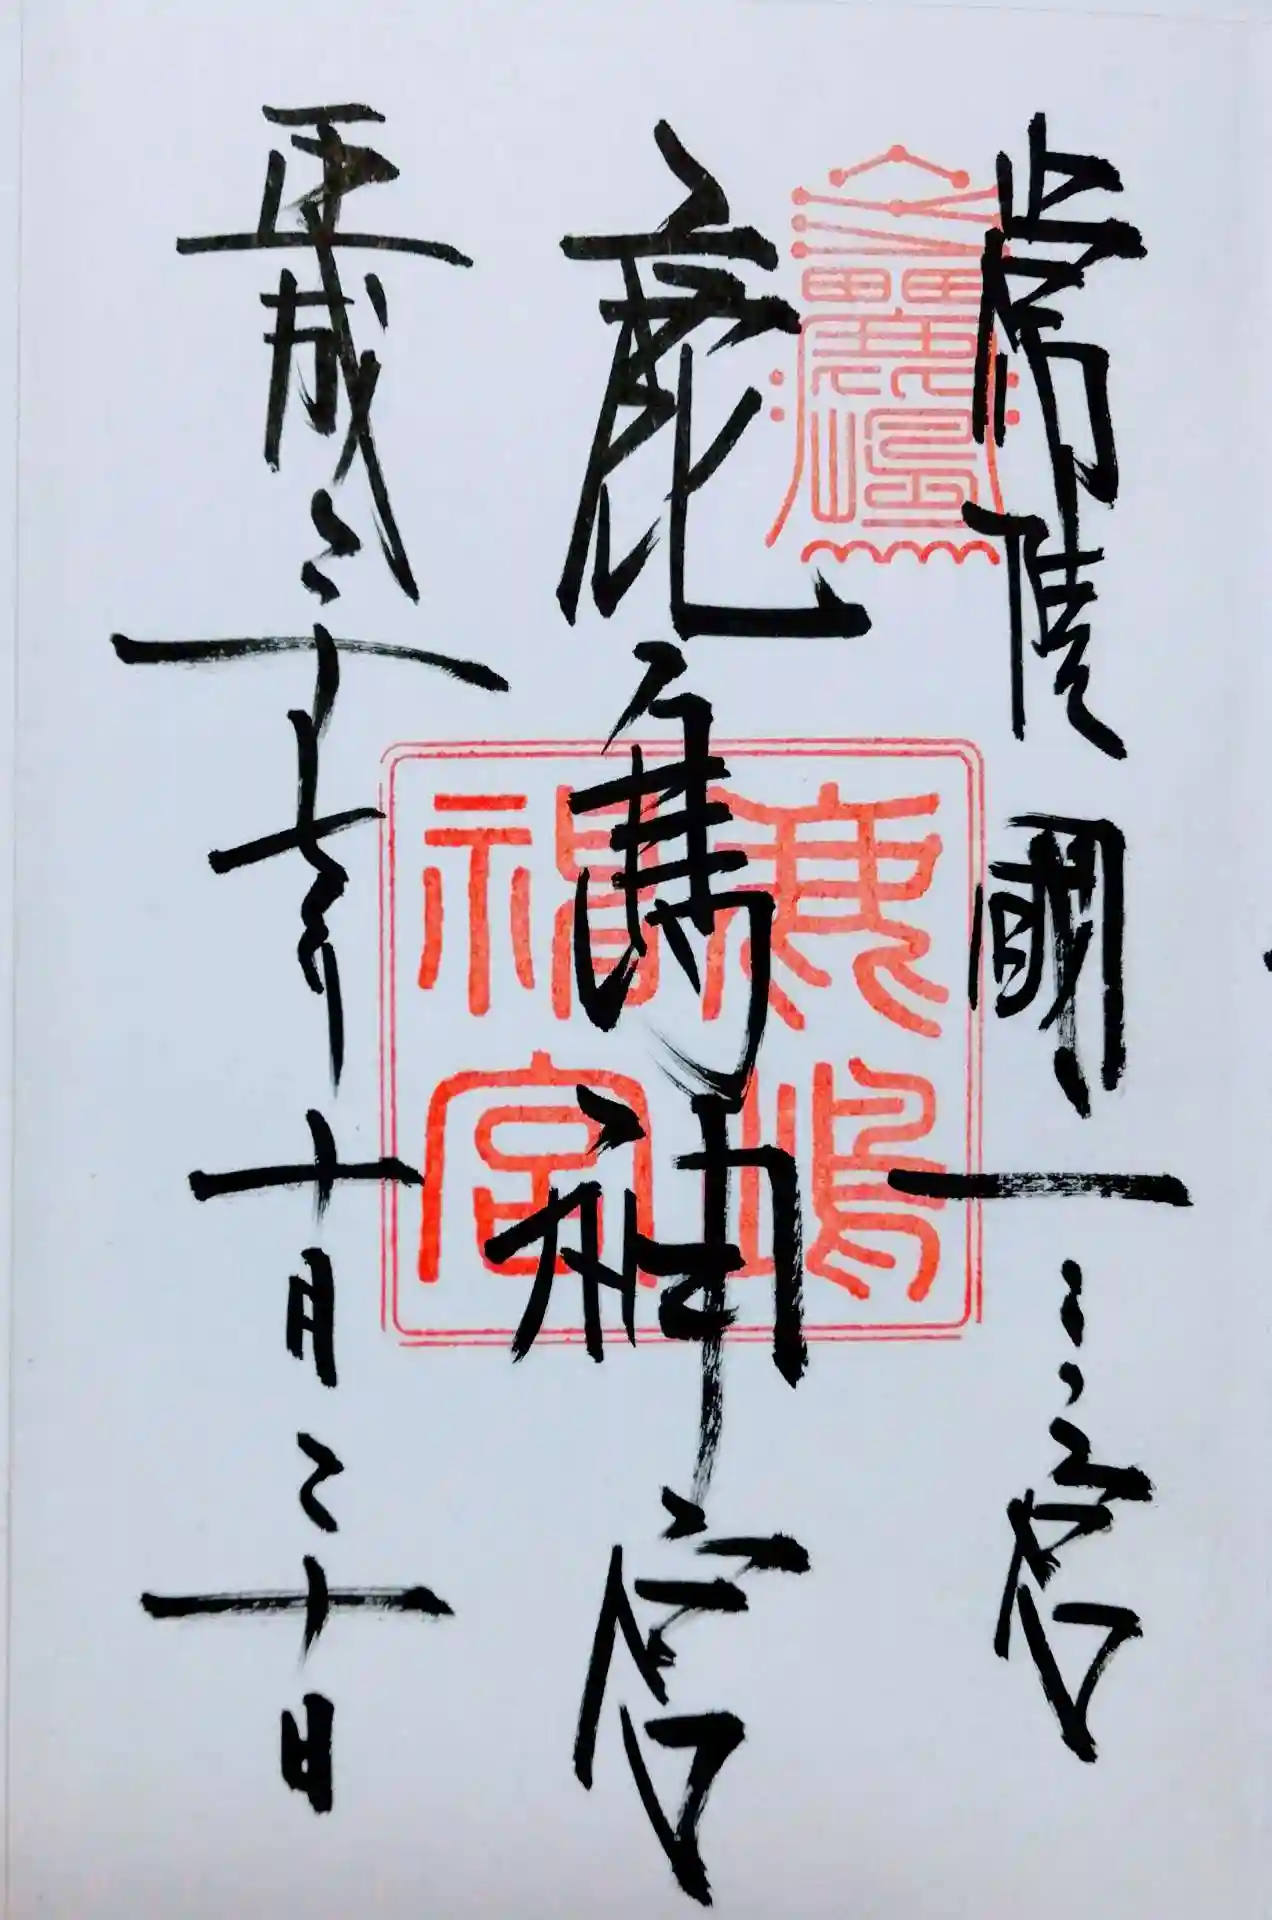 常陸國一之宮
鹿島神宮
平成二十七年十月二十日
鹿嶋
神宮